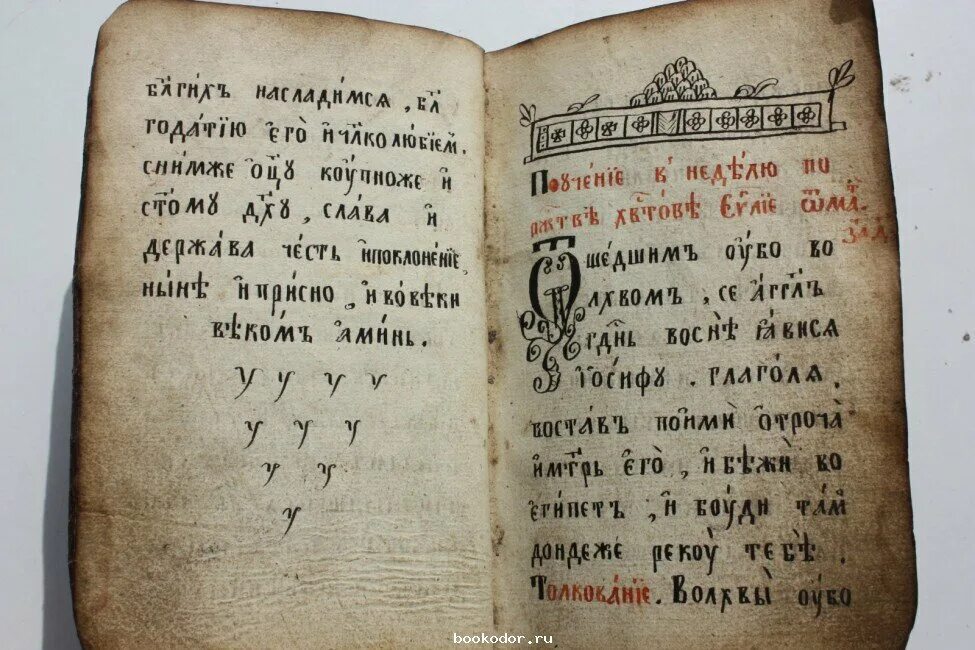 бл҃гихъ насладимся , бл҃
года́тїю єго̀ и҆ чл҃колю́бїем .
снимже ѻц҃у коу́пноже и҆
ст҃ому дх҃у , сла́ва и҆
держа́ва че́сть и҆поклоне́нїе ,
ны́нѣ и҆ при́сно , и҆ во́вѣки
вѣко́мъ а҆ми́нь .
Поуче́нїе к недѣ́лю по
ржⷭ҇твѣ хв҃то́вѣ Єѵⷢ҇лїе ѿ ма́т .
за́л
Ѿше́дшимъ оу҆́бо во
лхво́мъ , се а҆́гг҃лъ
гд҃нь воснѣ̀ ꙗ҆ви́ся
І҆о́сифу . глаго́ля .
воста́въ поимѝ ѻ҆троча̀
и҆ мт҃рь є҆го̀ , и҆ бѣжѝ во
єги́петъ , и҆ боу́ди та́м
до́ндеже рекоу̀ те́бѣ .
Толкова́нїе . Волхвы̀ оу҆́бо
bookodor.ru